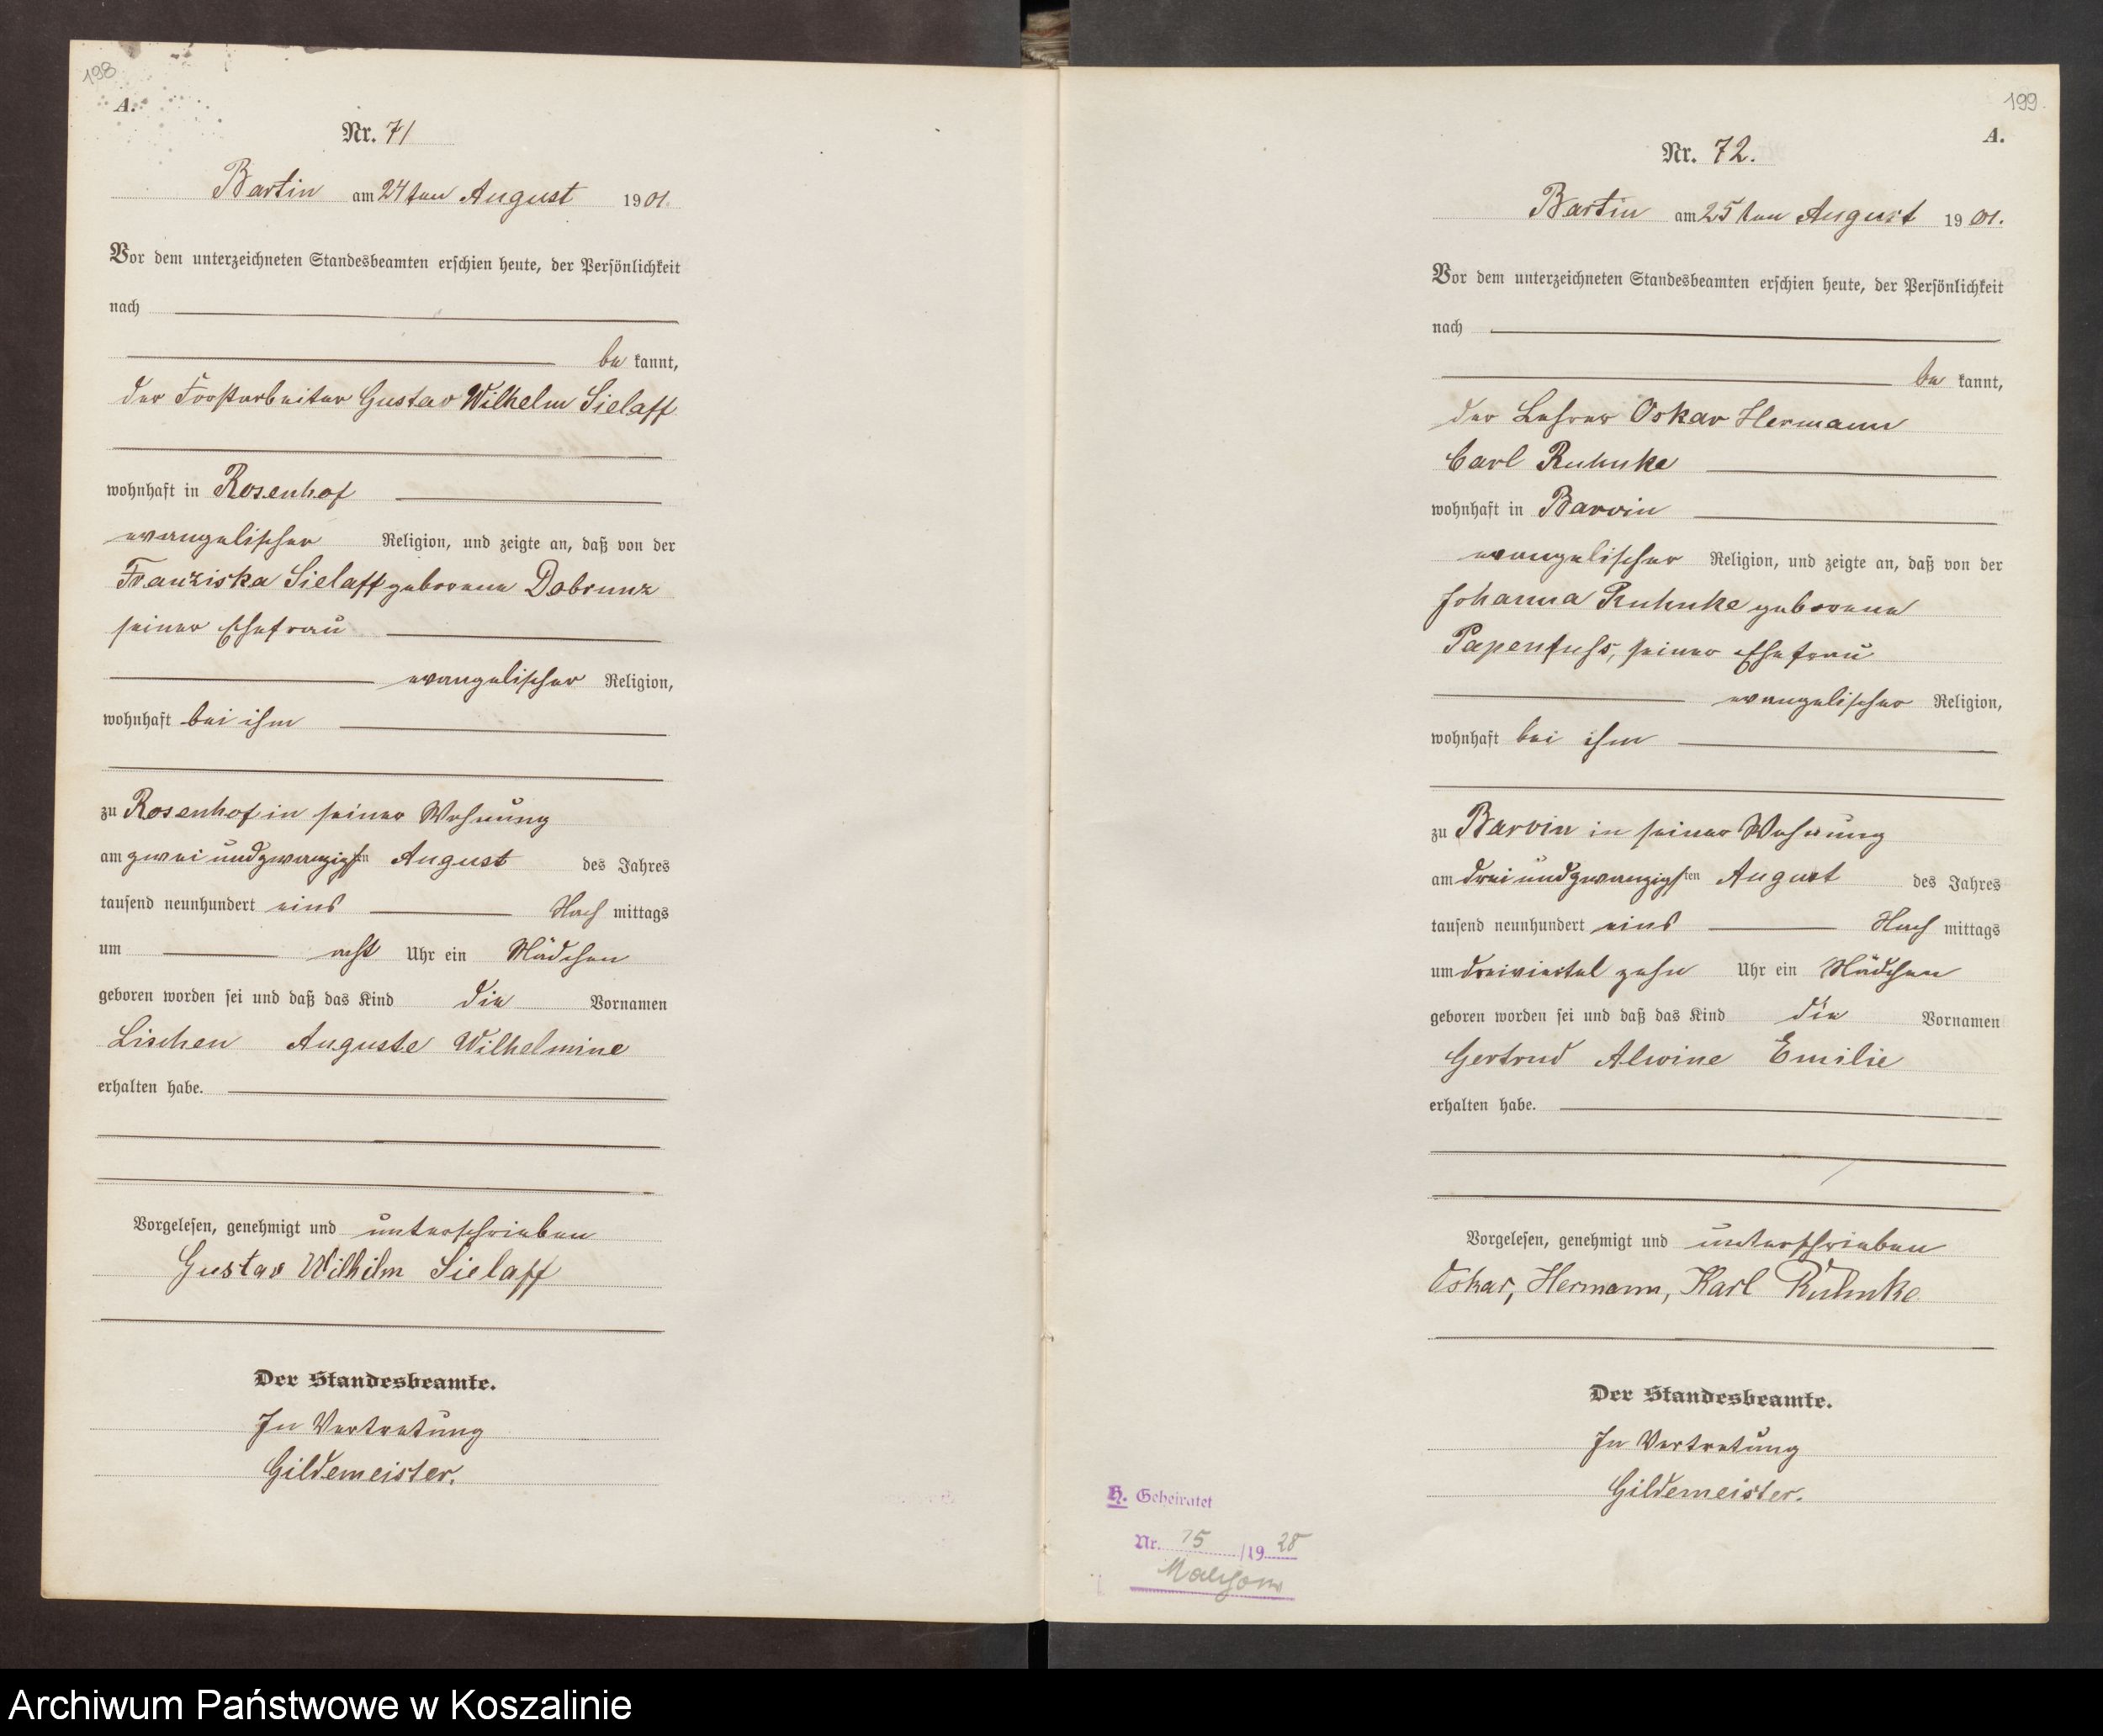 198
A.
Nr. 71
Bartin am 24ten August 1901.
Vor dem unterzeichneten Standesbeamten erschien heute, der Persönlichkeit
nach
be kannt,
der Forstarbeiter Gustav Wilhelm Sielaff
wohnhaft in Rosenhof
evangelischer Religion, und zeigte an, daß von der
Franziska Sielaff geborene Dobrunz
seiner Ehefrau
evangelischer Religion,
wohnhaft bei ihm
zu Rosenhof in seiner Wohnung
am zwei und zwanzigsten August des Jahres
tausend neunhundert eins Nach mittags
um acht Uhr ein Mädchen
geboren worden sei und daß das Kind die Vornamen
Lischen Auguste Wilhelmine
erhalten habe.
Vorgelesen, genehmigt und unterschrieben
Gustav Wilhelm Sielaff
Der Standesbeamte.
In Vertretung
Gildemeister.
199.
A.
Nr. 72.
Bartin am 25ten August 1901.
Vor dem unterzeichneten Standesbeamten erschien heute, der Persönlichkeit
nach
be kannt,
der Lehrer Oskar Hermann
Carl Ruhnke
wohnhaft in Barvin
evangelischer Religion, und zeigte an, daß von der
Johanna Ruhnke geborene
Papenfuss, seiner Ehefrau
evangelischer Religion,
wohnhaft bei ihm
zu Barvin in seiner Wohnung
am drei und zwanzigsten August des Jahres
tausend neunhundert eins Nach mittags
um dreiviertel zehn Uhr ein Mädchen
geboren worden sei und daß das Kind die Vornamen
Gertrud Alwine Emilie
erhalten habe.
Vorgelesen, genehmigt und unterschrieben
Oskar, Hermann, Karl Ruhnke
Der Standesbeamte.
In Vertretung
Gildemeister.
H. Geheiratet
Nr. 15 /1928
Archiwum Państwowe w Koszalinie